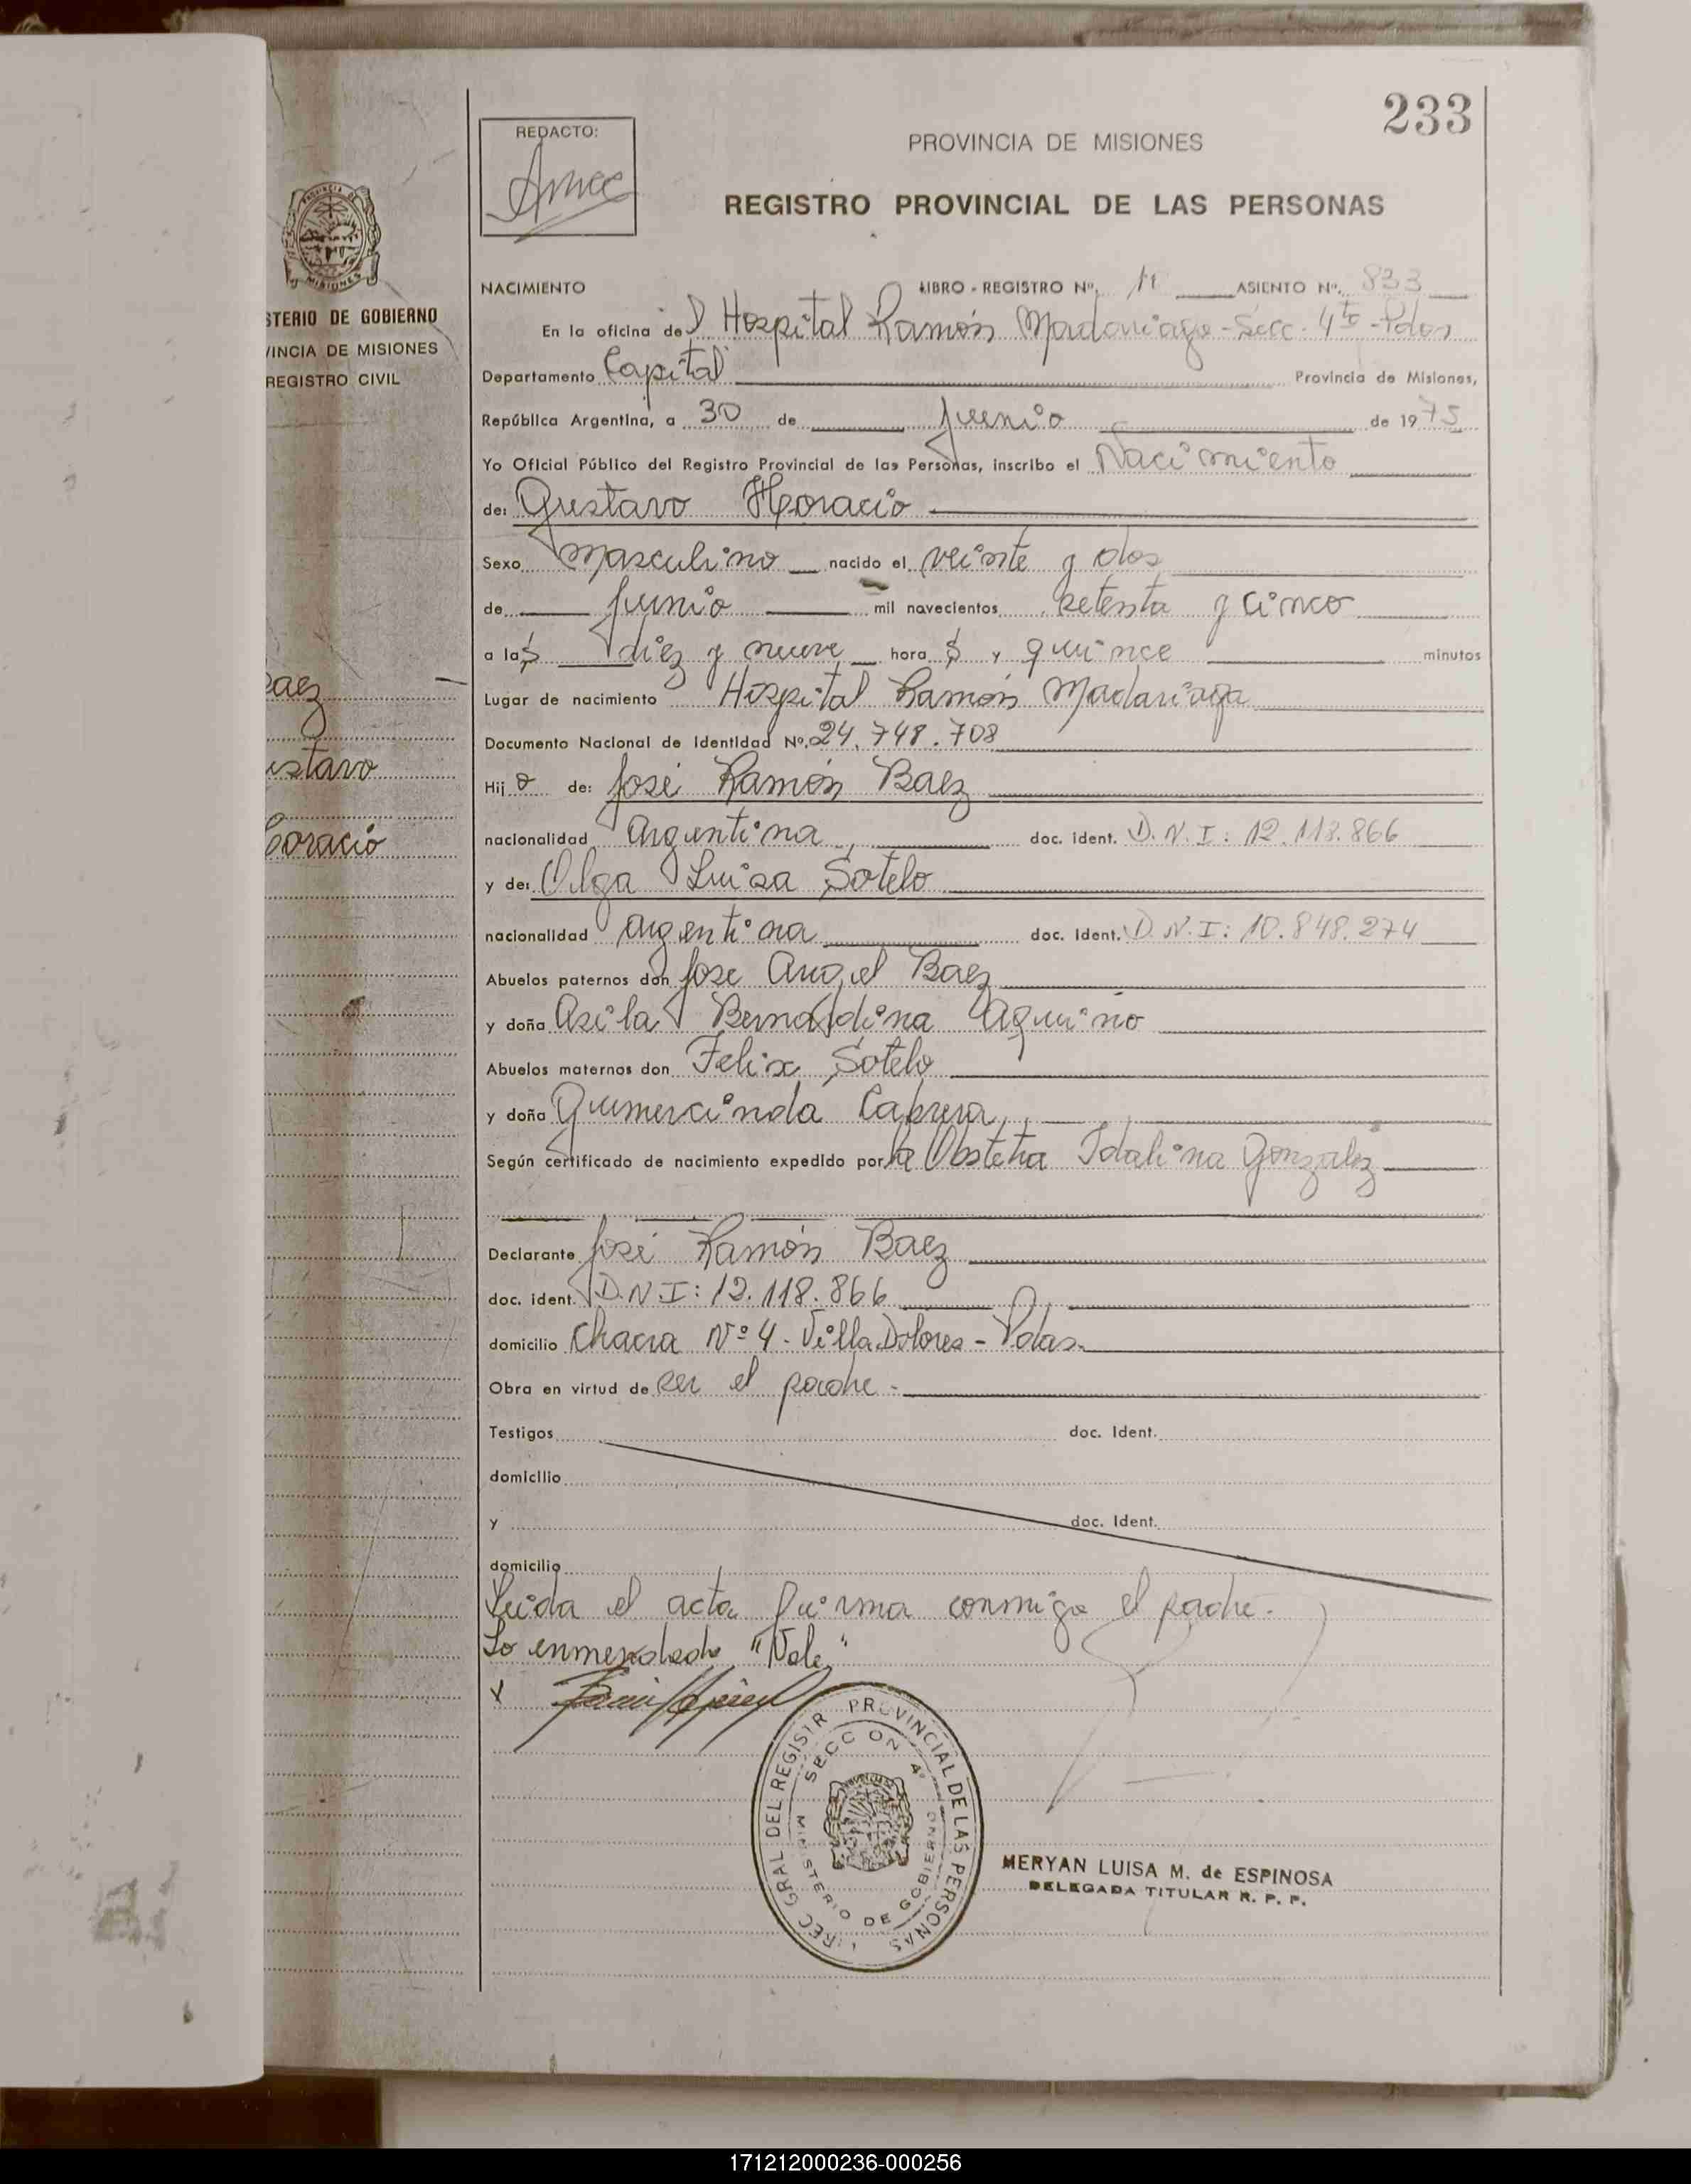 233
REDACTO:
PROVINCIA DE MISIONES
REGISTRO PROVINCIAL DE LAS PERSONAS
STERIO DE GOBIERNO
VINCIA DE MISIONES
REGISTRO CIVIL
NACIMIENTO LIBRO - REGISTRO Nº. 11 ASIENTO Nº. 833
En la oficina del Hospital Ramón Madariaga - Secc. 4ta - Pdas
Departamento Capital Provincia de Misiones,
República Argentina, a 30 de junio de 1975
Yo Oficial Público del Registro Provincial de las Personas, inscribo el Nacimiento
de: Gustavo Horacio
Sexo masculino nacido el veinte y dos
de junio mil novecientos setenta y cinco
a las diez y nueve hora s y quince minutos
Baez
Lugar de nacimiento Hospital Ramón Madariaga
Documento Nacional de Identidad Nº. 24.748.708
ustavo
Hijo de: José Ramón Baez
Horacio
nacionalidad Argentina doc. ident. D.N.I: 12.118.866
y de: Olga Luisa Sotelo
nacionalidad Argentina doc. Ident. D.N.I: 10.848.274
Abuelos paternos don Jose Angel Baez
y doña Asila Bernardina Aquino
Abuelos maternos don Felix Sotelo
y doña Gumercinda Cabrera
Según certificado de nacimiento expedido por la Obstetra Idalina Gonzalez
Declarante José Ramón Baez
doc. ident. D.N.I: 12.118.866
domicilio Chacra Nº 4 - Villa Dolores - Pdas.
Obra en virtud de ser el padre -
Testigos doc. Ident.
domicilio
y doc. Ident.
domicilio
Leida el acta firma conmigo el padre.
Lo enmendado "Vale"
X
DIREC GRAL DEL REGISTR PROVINCIAL DE LAS PERSONAS
SECCION 4º
MINISTERIO DE GOBIERNO
MERYAN LUISA M. de ESPINOSA
DELEGADA TITULAR R. P. P.
171212000236-000256